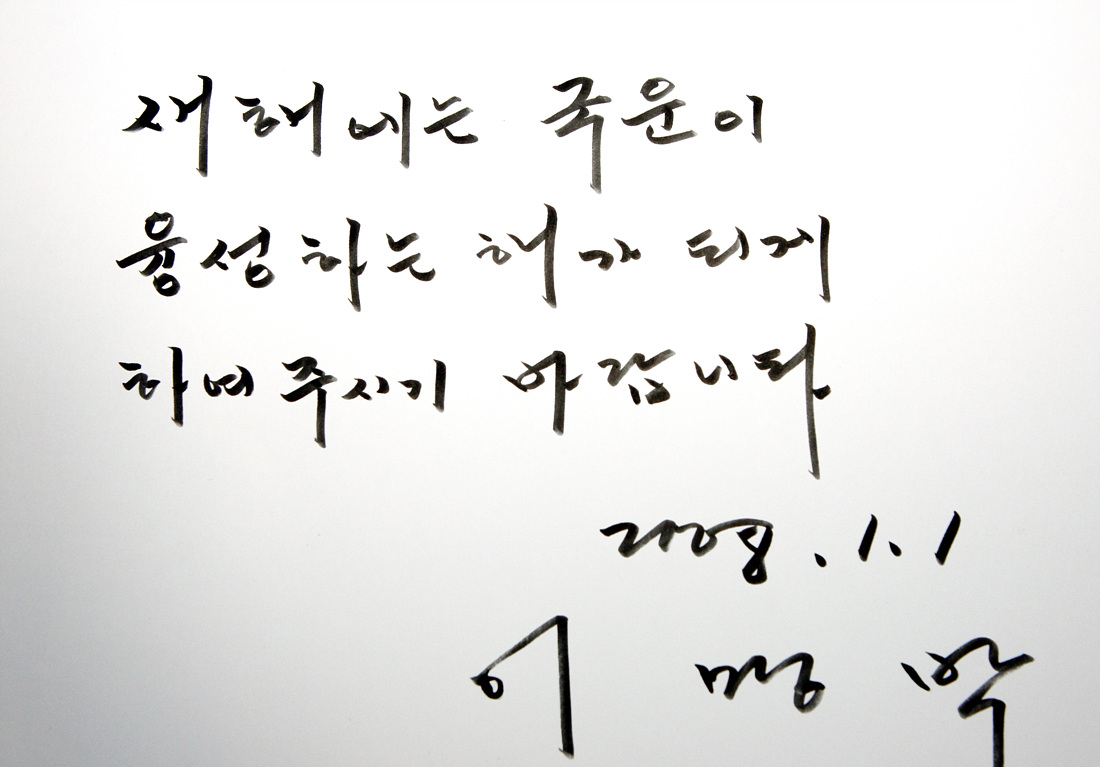 새해에는 국운이
융성하는 해가 되게
하여주시기 바랍니다
2008.1.1
이 명 박